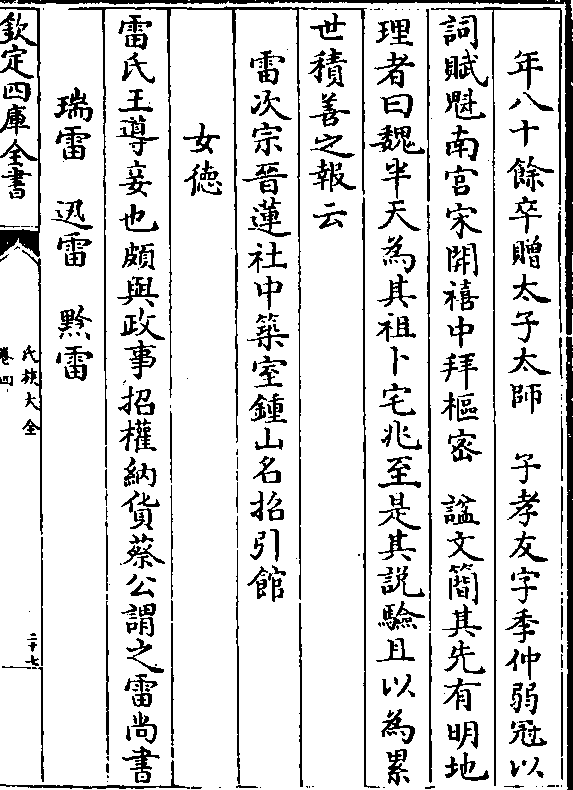 年八十餘卒贈太子太師　子孝友字季仲弱冠以
詞賦魁南宫宋開禧中拜樞密　諡文簡其先有明地
理者曰魏半天為其祖卜宅兆至是其説驗且以為累
世積善之報云
雷次宗晉蓮社中築室鍾山名招引館
女德
雷氏王導妾也頗與政事招權納貨蔡公謂之雷尚書
瑞雷　迅雷　黙雷
欽定四庫全書
氏族大全
卷四
二十七